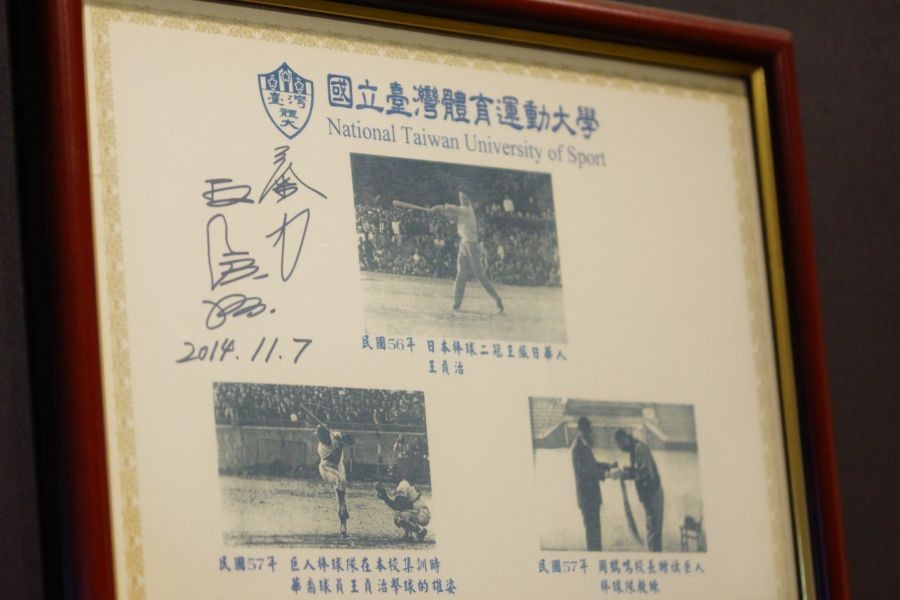 臺灣
體大
國立臺灣體育運動大學
National Taiwan University of Sport
努力
2014.11.7
民國56年 日本棒球二冠王旅日華人
王貞治
民國57年 巨人棒球隊在本校集訓時
華裔球員王貞治擊球的雄姿
民國57年 周鶴鳴校長贈旗巨人
棒球隊教練